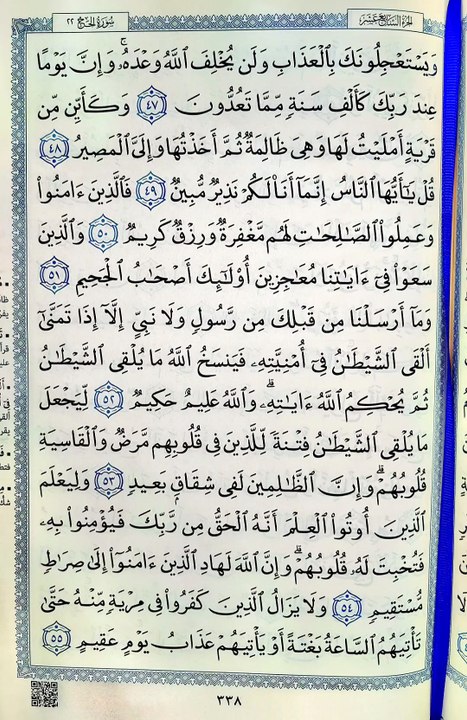 الجزء السابع عشر
سورة الحج ٢٢
وَيَسْتَعْجِلُونَكَ بِالْعَذَابِ وَلَن يُخْلِفَ اللَّهُ وَعْدَهُۥۚ وَإِنَّ يَوْمًا
عِندَ رَبِّكَ كَأَلْفِ سَنَةٍ مِّمَّا تَعُدُّونَ ٤٧ وَكَأَيِّن مِّن
قَرْيَةٍ أَمْلَيْتُ لَهَا وَهِيَ ظَالِمَةٌ ثُمَّ أَخَذْتُهَا وَإِلَيَّ الْمَصِيرُ ٤٨
قُلْ يَٰٓأَيُّهَا النَّاسُ إِنَّمَآ أَنَا۠ لَكُمْ نَذِيرٌ مُّبِينٌ ٤٩ فَالَّذِينَ ءَامَنُوا۟
وَعَمِلُوا۟ الصَّٰلِحَٰتِ لَهُم مَّغْفِرَةٌ وَرِزْقٌ كَرِيمٌ ٥٠ وَالَّذِينَ
سَعَوْا۟ فِيٓ ءَايَٰتِنَا مُعَٰجِزِينَ أُو۟لَٰٓئِكَ أَصْحَٰبُ الْجَحِيمِ ٥١
وَمَآ أَرْسَلْنَا مِن قَبْلِكَ مِن رَّسُولٍ وَلَا نَبِيٍّ إِلَّآ إِذَا تَمَنَّىٰٓ
أَلْقَى الشَّيْطَٰنُ فِيٓ أُمْنِيَّتِهِۦ فَيَنسَخُ اللَّهُ مَا يُلْقِي الشَّيْطَٰنُ
ثُمَّ يُحْكِمُ اللَّهُ ءَايَٰتِهِۦۗ وَاللَّهُ عَلِيمٌ حَكِيمٌ ٥٢ لِّيَجْعَلَ
مَا يُلْقِي الشَّيْطَٰنُ فِتْنَةً لِّلَّذِينَ فِي قُلُوبِهِم مَّرَضٌ وَالْقَاسِيَةِ
قُلُوبُهُمْۗ وَإِنَّ الظَّٰلِمِينَ لَفِي شِقَاقٍۭ بَعِيدٍ ٥٣ وَلِيَعْلَمَ
الَّذِينَ أُوتُوا۟ الْعِلْمَ أَنَّهُ الْحَقُّ مِن رَّبِّكَ فَيُؤْمِنُوا۟ بِهِۦ
فَتُخْبِتَ لَهُۥ قُلُوبُهُمْۗ وَإِنَّ اللَّهَ لَهَادِ الَّذِينَ ءَامَنُوٓا۟ إِلَىٰ صِرَٰطٍ
مُّسْتَقِيمٍ ٥٤ وَلَا يَزَالُ الَّذِينَ كَفَرُوا۟ فِي مِرْيَةٍ مِّنْهُ حَتَّىٰ
تَأْتِيَهُمُ السَّاعَةُ بَغْتَةً أَوْ يَأْتِيَهُمْ عَذَابُ يَوْمٍ عَقِيمٍ ٥٥
٣٣٨